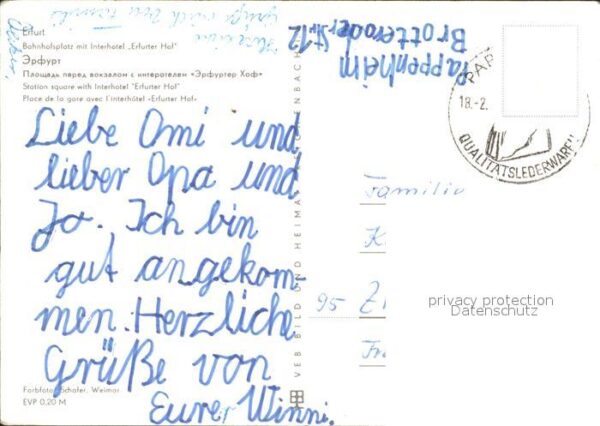 Erfurt
Bahnhofsplatz mit Interhotel „Erfurter Hof“
Эрфурт
Площадь перед вокзалом с интеротелем «Эрфуртер Хоф»
Station square with Interhotel "Erfurter Hof"
Place de la gare avec l'interhôtel «Erfurter Hof»
Liebe Omi und
lieber Opa und
Jo. Ich bin
gut angekom-
men. Herzliche
Grüße von
Eurer Winni.
Farbfoto: Schäfer, Weimar
EVP 0,20 M
VEB BILD UND HEIMAT
Pappenheim
Brotteroder Str. 12
PAP
18.-2.
QUALITÄTSLEDERWAREN
Familie
K
95 Z
Fr
privacy protection
Datenschutz